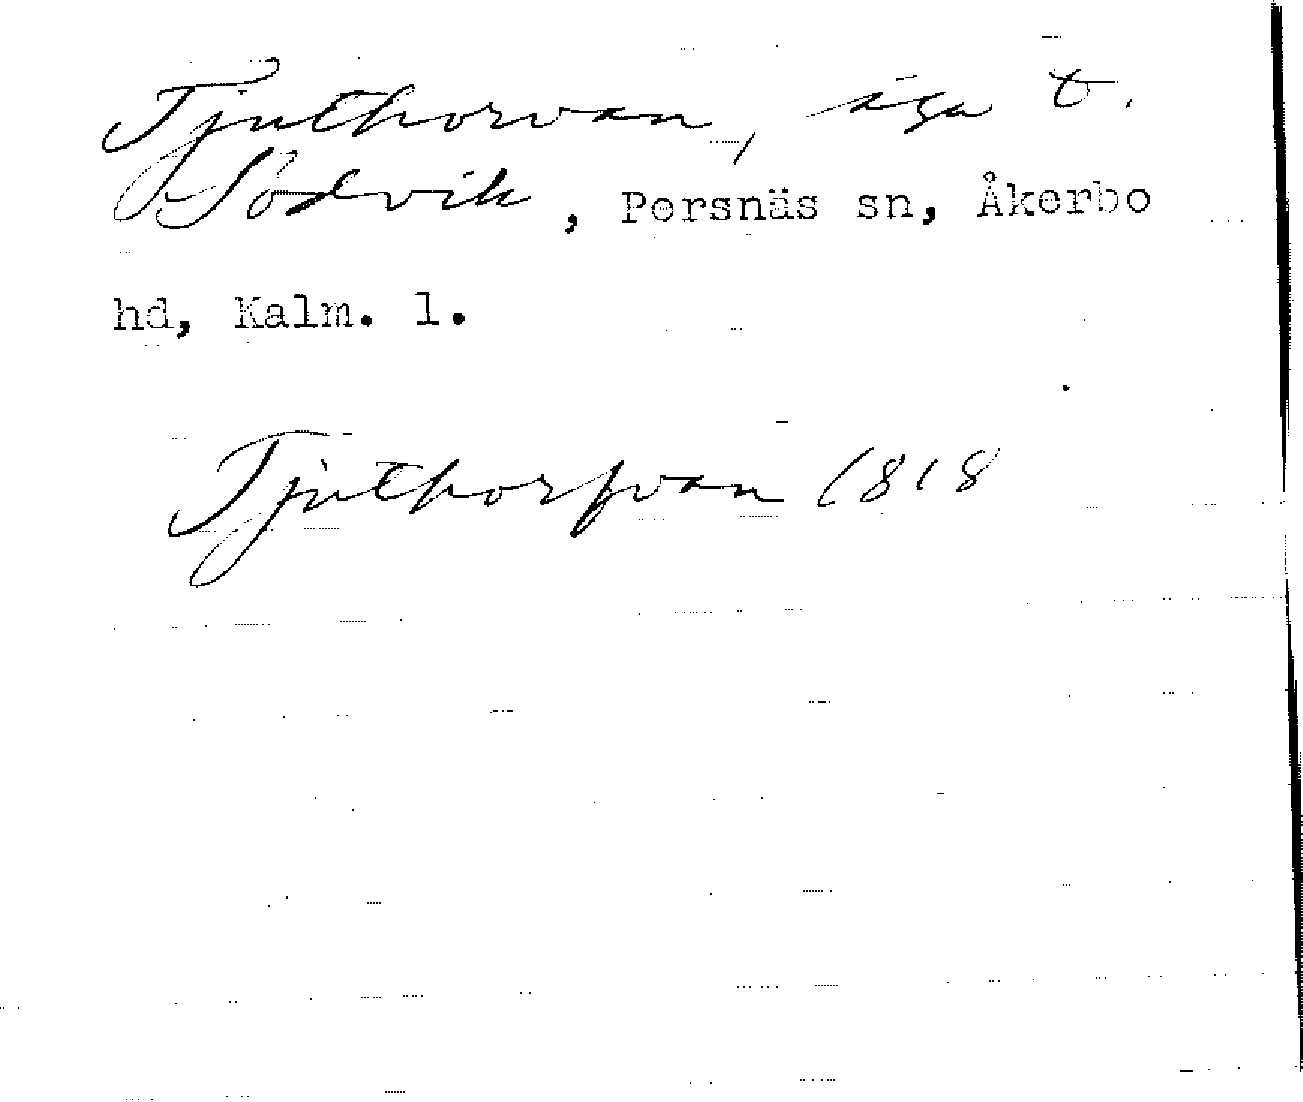 Tjuthorvan, äga t.
Södvik, Persnäs sn, Åkerbo
hd, Kalm. l.
Tjuthorfvan 1818